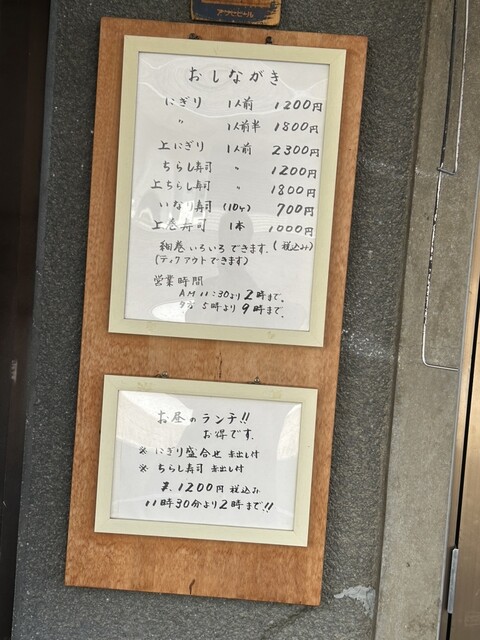 アサヒビール
おしながき
にぎり 1人前 1200円
〃 1人前半 1800円
上にぎり 1人前 2300円
ちらし寿司 〃 1200円
上ちらし寿司 〃 1800円
いなり寿司 (10ヶ) 700円
上巻寿司 1本 1000円
細巻いろいろできます。(税込み)
(テイクアウトできます)
営業時間
AM 11:30より2時まで。
夕方5時より9時まで。
お昼のランチ!!
お得です。
※ にぎり盛合せ 赤出し付
※ ちらし寿司 赤出し付
1200円 税込み
11時30分より2時まで!!